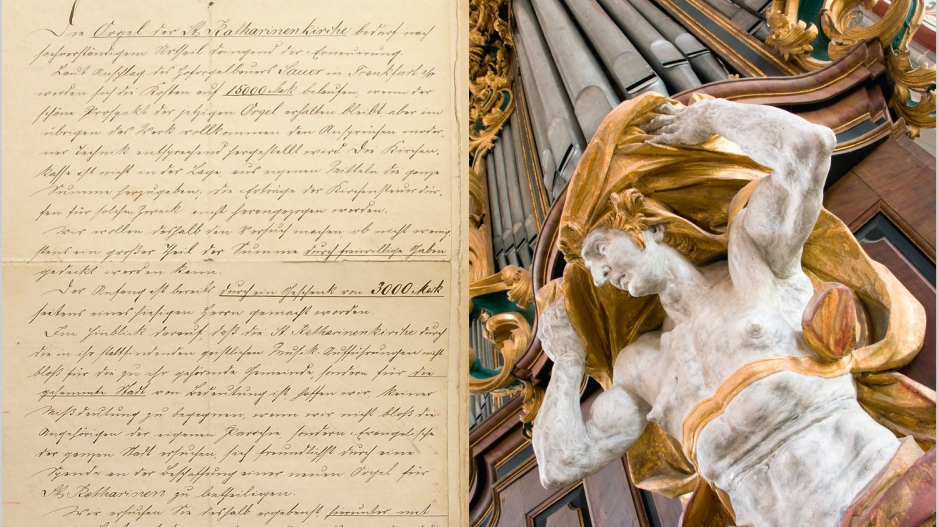 Die Orgel der St. Katharinenkirche bedarf nach
sachverständigem Urtheil dringend der Erneuerung.
Laut Anschlag des Hoforgelbauers Sauer in Frankfurt a/O
werden sich die Kosten auf 18000 Mark belaufen, wenn der
schöne Prospekt der jetzigen Orgel erhalten bleibt, aber im
übrigen das Werk vollkommen den Ansprüchen moder-
ner Technik entsprechend hergestellt wird. Die Kirchen-
kasse ist nicht in der Lage, aus eigenen Mitteln die ganze
Summe herzugeben. Die Erträge der Kirchensteuer dür-
fen für solchen Zweck nicht herangezogen werden.
Wir wollen deshalb den Versuch machen ob nicht wenig-
stens ein großer Theil der Summe durch freiwillige Gaben
gedeckt werden kann.
Der Anfang ist bereits durch ein Geschenk von 3000 Mark
seitens eines hiesigen Herrn gemacht worden.
Im Hinblick darauf, daß die St. Katharinenkirche durch
die in ihr stattfindenden geistlichen Musik-Aufführungen nicht
bloß für die zu ihr gehörende Gemeinde, sondern für die
gesammte Stadt von Bedeutung ist, hoffen wir, keiner
Mißdeutung zu begegnen, wenn wir nicht bloß die
Angehörigen der eigenen Parochie sondern Evangelische
der ganzen Stadt ersuchen, sich freundlichst durch eine
Spende an der Beschaffung einer neuen Orgel für
St. Katharinen zu betheiligen.
Wir ersuchen Sie deshalb ergebenst, hierunter mit